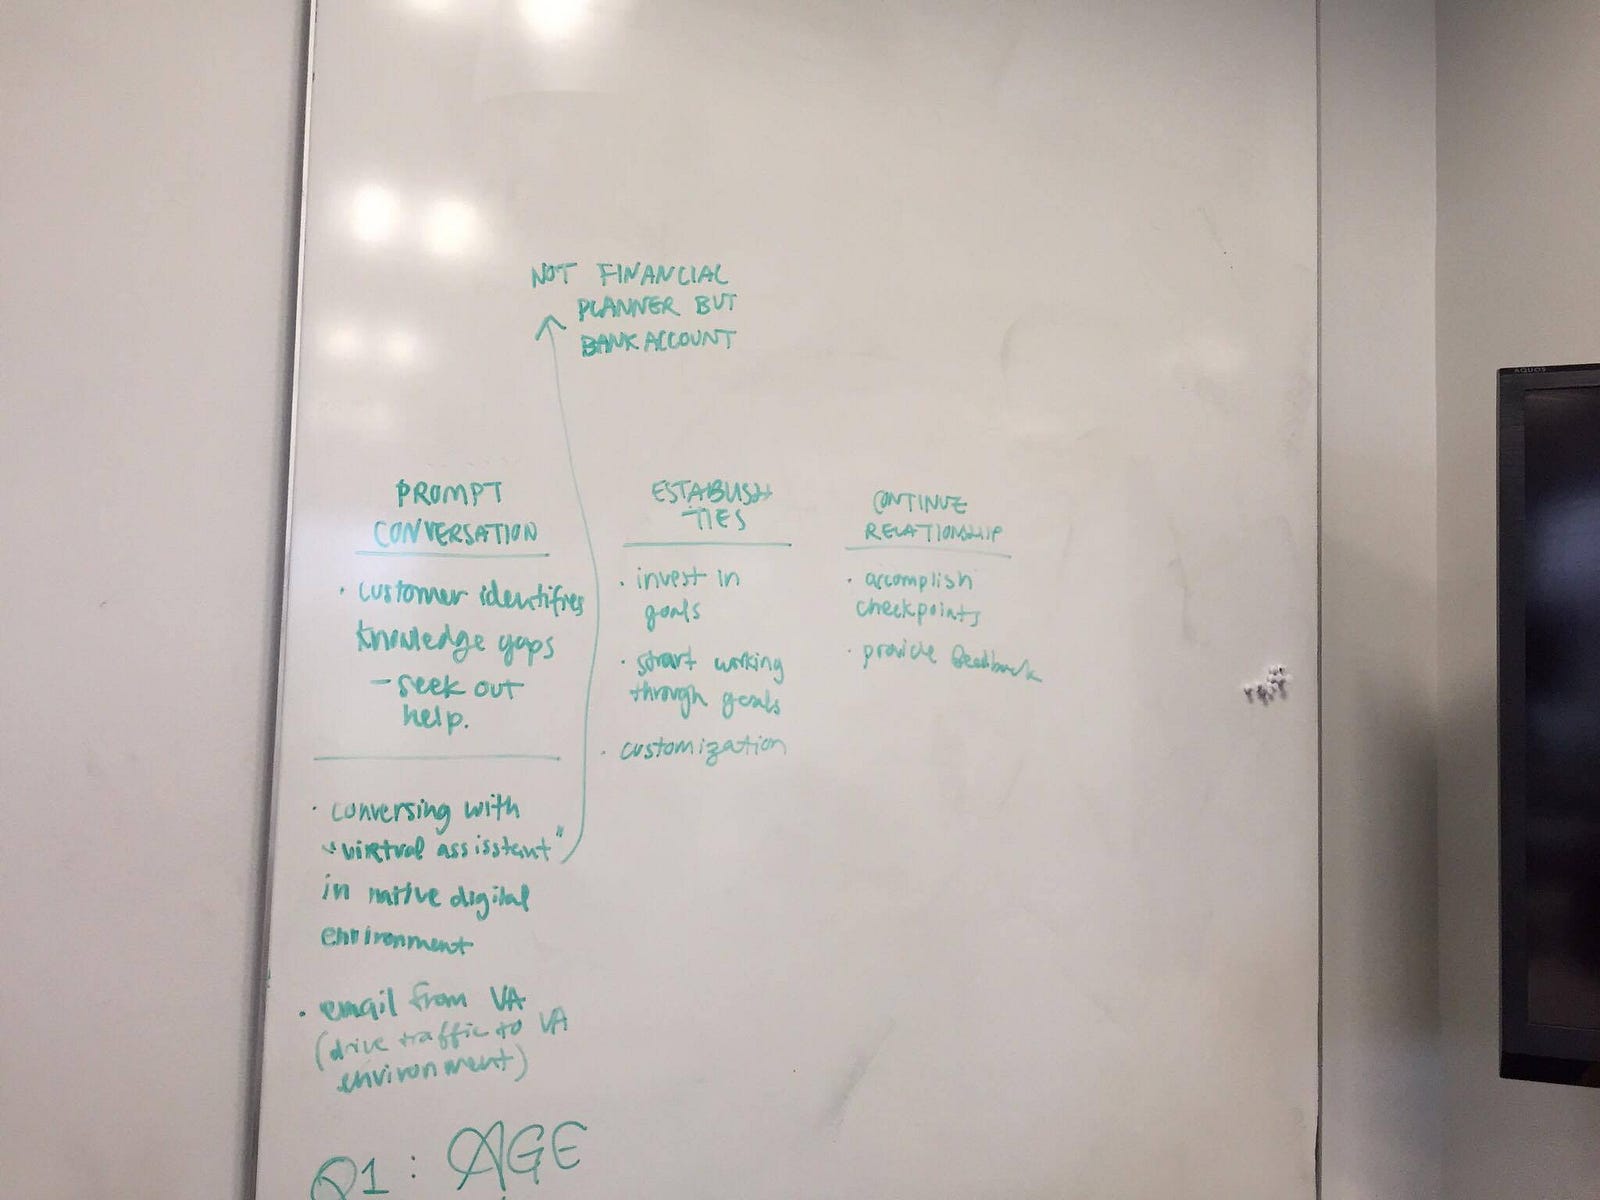 NOT FINANCIAL
PLANNER BUT
BANK ACCOUNT
PROMPT
CONVERSATION
· customer identifies
knowledge gaps
- seek out
help.
· conversing with
"virtual assisstant"
in native digital
environment
· email from VA
(drive traffic to VA
environment)
Q1: AGE
ESTABLISH
TIES
· invest in
goals
· start working
through goals
· customization
CONTINUE
RELATIONSHIP
· accomplish
checkpoints
· provide feedback
AQUOS